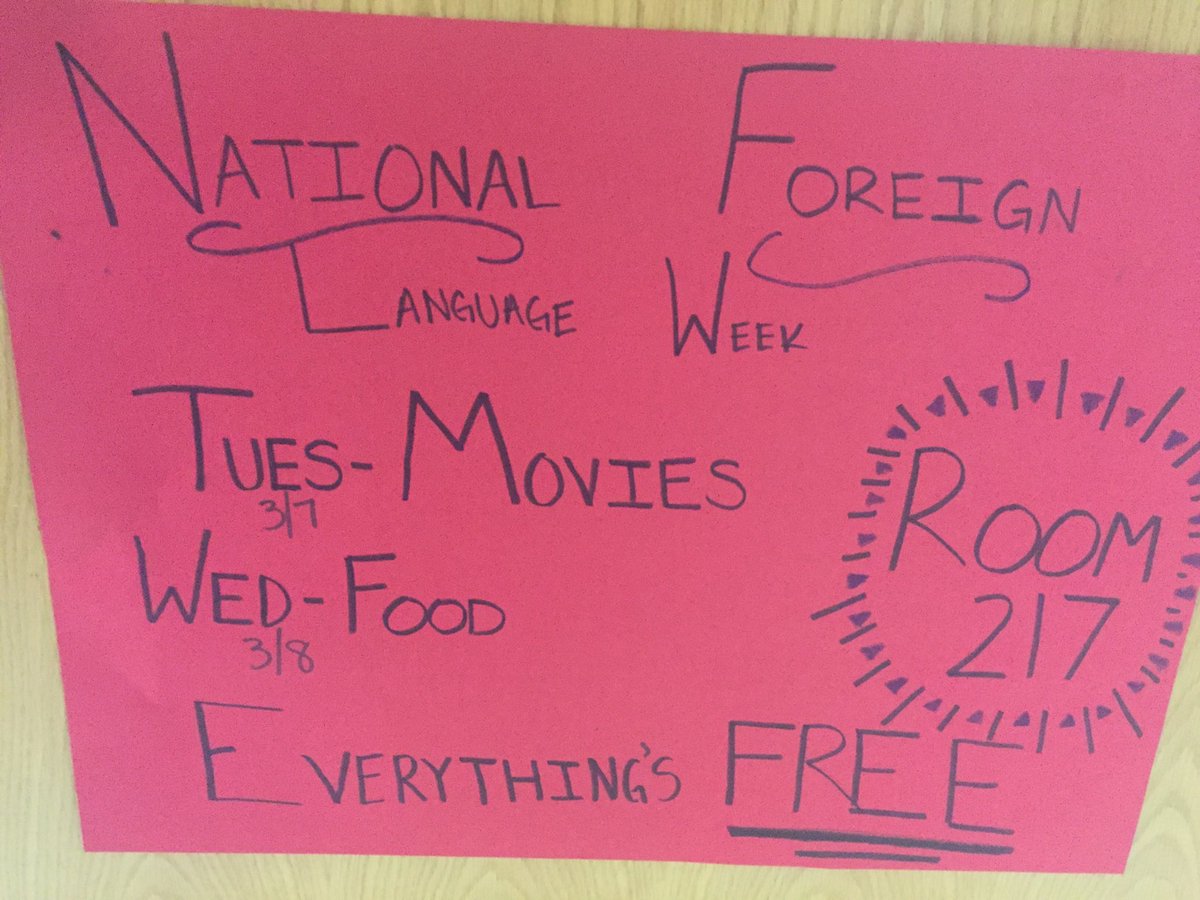 NATIONAL FOREIGN
LANGUAGE WEEK
TUES- MOVIES
3/7
WED- FOOD
3/8
ROOM
217
EVERYTHING'S FREE